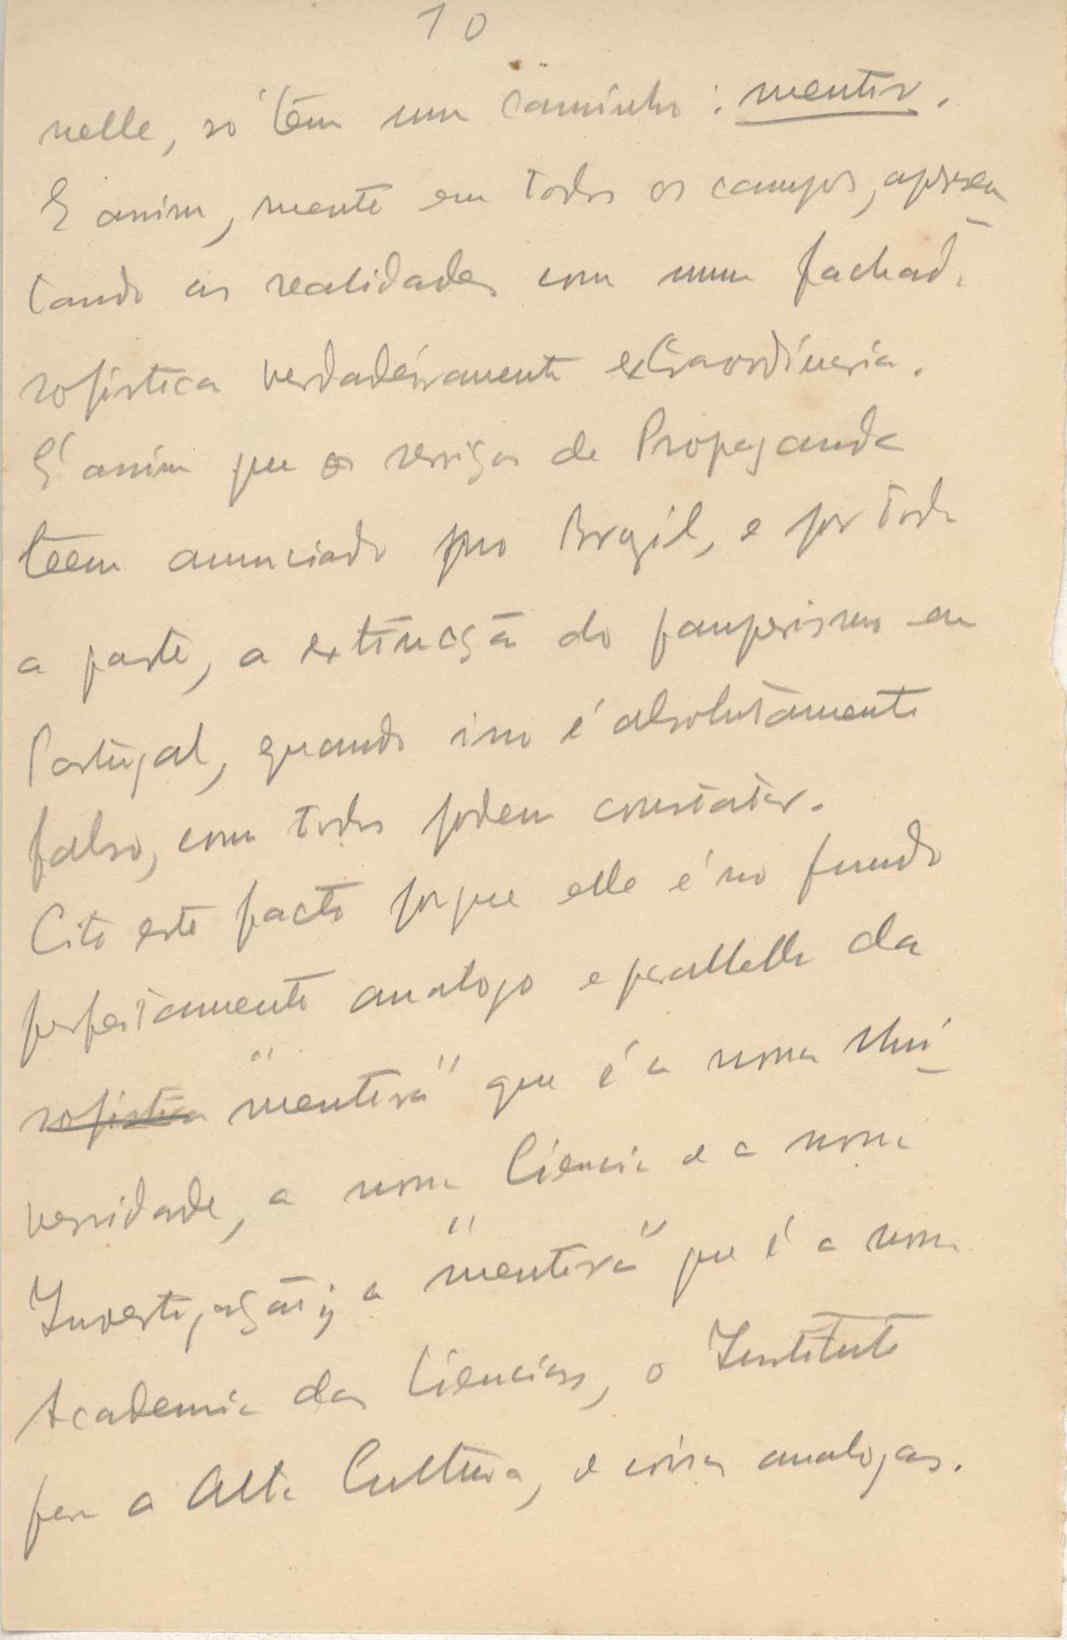 10
nelle, só tem um caminho: mentir.
E assim, mente em todos os campos, apresen-
tando as realidades com uma fachada
sofistica verdadeiramente extraordinaria.
É assim que os serviços de Propaganda
teem anunciado pro Brazil, e por toda
a parte, a extincção do pauperismo em
Portugal, quando isso é absolutamente
falso, como todos podem constatar.
Cito este facto porque elle é no fundo
perfeitamente analogo e parallello da
sofistica "mentira" que é a nossa Uni-
versidade, a nossa Ciencia e a nossa
Investigação; a "mentira" que é a nossa
Academia das Ciencias, o Instituto
para a Alta Cultura, e coisas analogas.